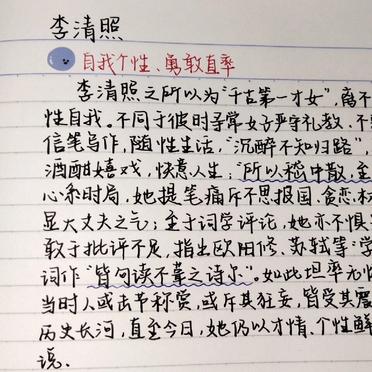 李清照
自我个性、勇敢直率
李清照之所以为“千古第一才女”,离不
性自我。不同于彼时寻常女子严守礼教、不
信笔写作,随性生活,“沉醉不知归路”,
酒酣嬉戏,快意人生;“所以嵇中散,至
心系时局,她提笔痛斥不思报国、贪恋
显大丈夫之气;至于词学评论,她亦不惧
敢于批评不足,指出欧阳修、苏轼等“学
词作“皆句读不葺之诗尔”。如此坦率
当时人或击节称赏,或斥其狂妄,皆受其震
历史长河,直至今日,她仍以才情、个性鲜
说.